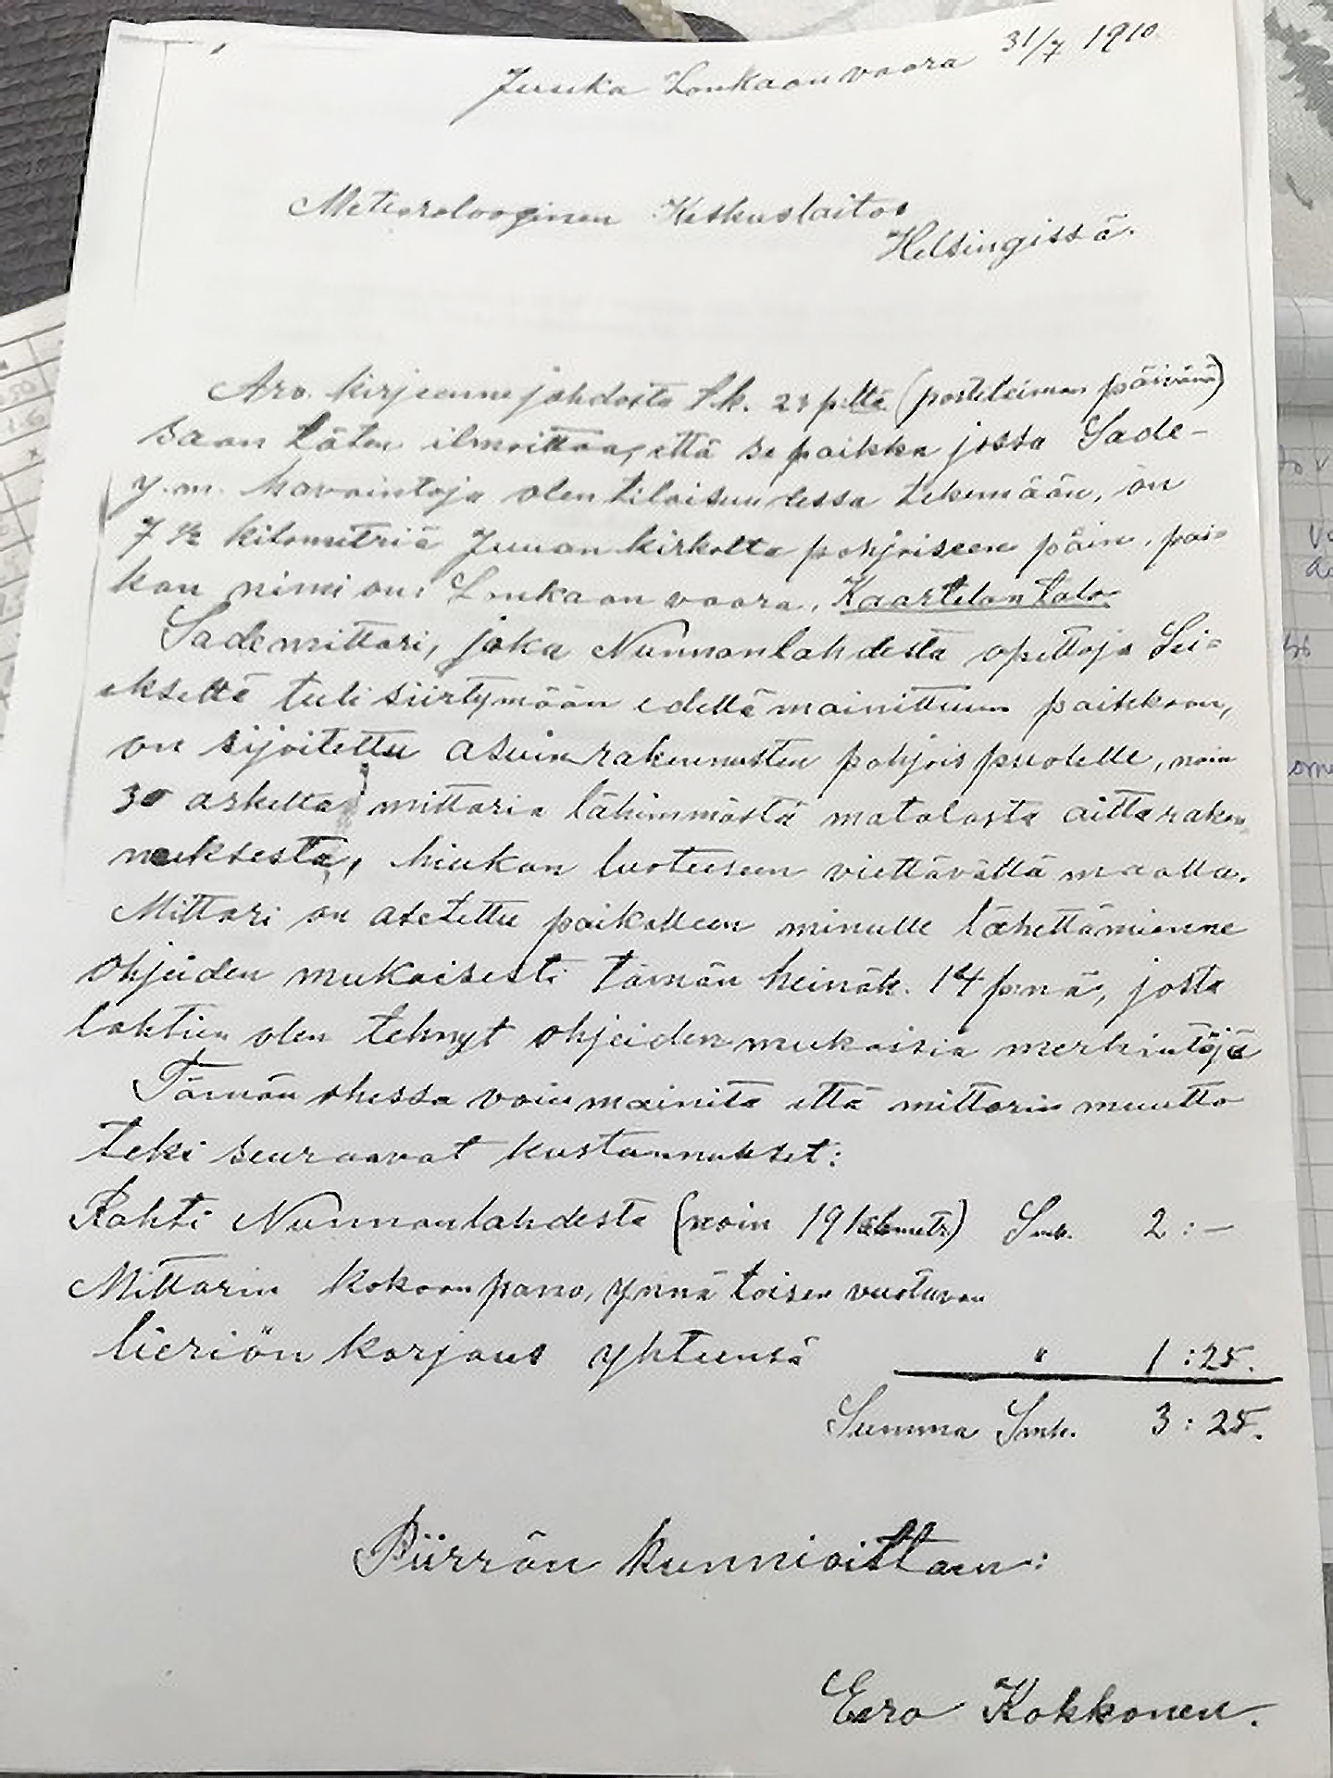 Juuka Loukaanvaara 31/7 1910
Meteorolooginen Keskuslaitos
Helsingissä.
Arv. kirjeenne johdosta t.k. 23 p:ltä (postileiman päivänä)
saan täten ilmoittaa, että se paikka jossa Sade-
y.m. havaintoja olen tilaisuudessa tekemään, on
7 ½ kilometriä Juuan kirkolta pohjoiseen päin, pai-
kan nimi on: Loukaanvaara, Kaartelan talo.
Sademittari, joka Nunnanlahdesta opettaja Sei-
ekseltä tuli siirtymään edellämainittuun paikkaan,
on sijoitettu asuinrakennusten pohjoispuolelle, noin
30 askelta mittaria lähimmästä matalasta aittaraken
nuksesta, hiukan luoteeseen viettävällä maalla.
Mittari on asetettu paikalleen minulle lähettämienne
ohjeiden mukaisesti tämän heinäk. 14 p:nä, josta
lähtien olen tehnyt ohjeiden mukaisia merkintöjä
Tämän ohessa voin mainita että mittarin muutto
teki seuraavat kustannukset:
Rahti Nunnanlahdesta (noin 19 kilometr.) Smk. 2:—
Mittarin kokoonpano, ynnä toisen vuotavan
lieriön korjaus yhteensä " 1:25.
Summa Smk. 3:25.
Piirrän kunnioittaen:
Eero Kokkonen.